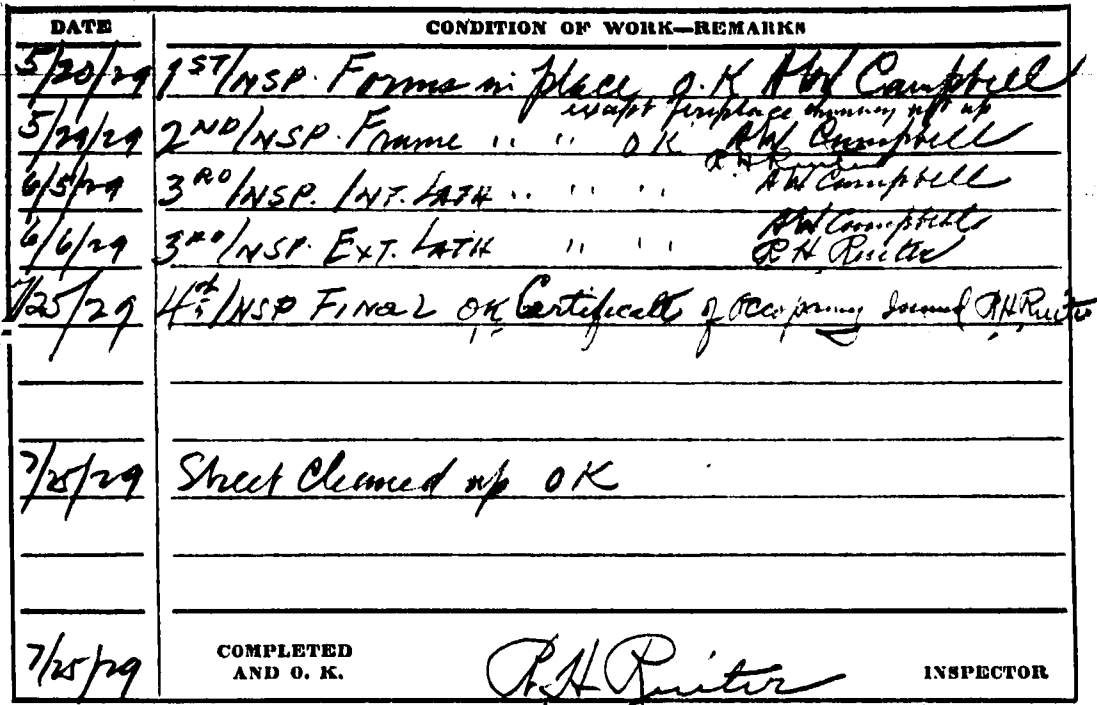 DATE CONDITION OF WORK—REMARKS
5/20/29 1ST INSP. Forms in place O.K AW Campbell
except fireplace chimney not up
5/29/29 2ND INSP. Frame " " OK AW Campbell
R.H. Ruiter
6/5/29 3RD INSP. INT. LATH " " " AW Campbell
AW Campbell
6/6/29 3RD INSP. EXT. LATH " " R H Ruiter
7/25/29 4th INSP FINAL OK Certificate of Occupancy Issued RH Ruiter
7/25/29 Street Cleaned up OK
7/25/29 COMPLETED AND O. K. R H Ruiter INSPECTOR